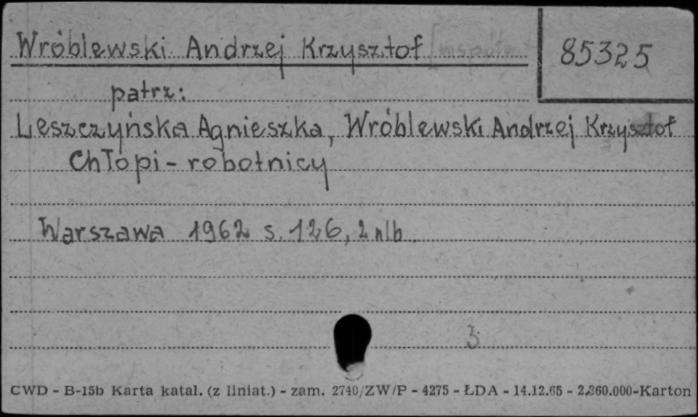 Wróblewski Andrzej Krzysztof [współaut.
85325
patrz:
Leszczyńska Agnieszka, Wróblewski Andrzej Krzysztof
Chłopi-robotnicy
Warszawa 1962 s. 126, 2 nlb.
3
CWD - B-15b Karta katal. (z liniat.) - zam. 2740/ZW/P - 4275 - ŁDA - 14.12.65 - 2.260.000-Karton